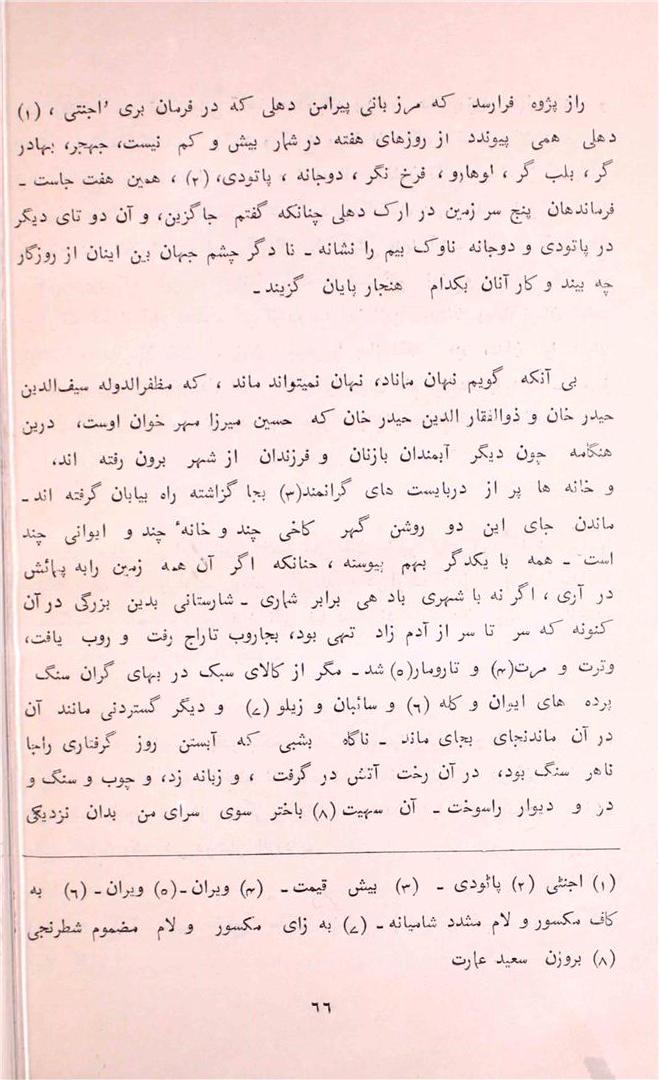 راز پژوه فرارسد که مرزبانی پیرامن دهلی که در فرمان بری ʼاجنتی ، (۱)
دهلی همی پیوندد از روزهای هفته در شمار بیش و کم نیست، جهجر، بهادر
گر ، بلب گر ، لوهارو ، فرخ نگر ، دوجانه ، پاتودی، (۲) ، همین هفت جاست ـ
فرماندهان پنج سر زمین در ارک دهلی چنانکه گفتم جاگزین، و آن دو تای دیگر
در پاتودی و دوجانه ناوک بیم را نشانه ـ نا دگر چشم جهان بین اینان از روزگار
چه بیند و کار آنان بکدام هنجار پایان گزیند ـ
بی آنکه گویم نهان ماناد، نهان نمیتواند ماند ، که مظفرالدوله سیف‌الدین
حیدر خان و ذوالفقار الدین حیدر خان که حسین میرزا مهر خوان اوست، درین
هنگامه چون دیگر آبمندان بازنان و فرزندان از شهر برون رفته اند،
و خانه ها پر از دربایست های گرانمند(۳) بجا گزاشته راه بیابان گرفته اند ـ
ماندن جای این دو روشن گهر کاخی چند و خانهٔ چند و ایوانی چند
است ـ همه با یکدگر بهم پیوسته ، چنانکه اگر آن همه زمین رابه پیمائش
در آری ، اگر نه با شهری باد هی برابر شماری ـ شارستانی بدین بزرگی در آن
کنونه که سر تا سر از آدم زاد تهی بود، بجاروب تاراج رفت و روب یافت،
وترت و مرت(۴) و تارومار(۵) شد ـ مگر از کالای سبک در بهای گران سنگ
پرده های ایوان و کله (۶) و سائبان و زیلو (۷) و دیگر گستردنی مانند آن
در آن ماندنجای بجای ماند ـ ناگاه بشبی که آبستن روز گرفتاری راجا
ناهر سنگ بود، در آن رخت آتش در گرفت ، و زبانه زد، و چوب و سنگ و
در و دیوار راسوخت ـ آن سهیت (۸) باختر سوی سرای من بدان نزدیکی
(۱) اجنٹی (۲) پاٹودی ـ (۳) بیش قیمت ـ (۴) ویران ـ(۵) ویران ـ (۶) به
کاف مکسور و لام مشدد شامیانه ـ (۷) به زای مکسور و لام مضموم شطرنجی
(۸) بروزن سعید عمارت
۶۶